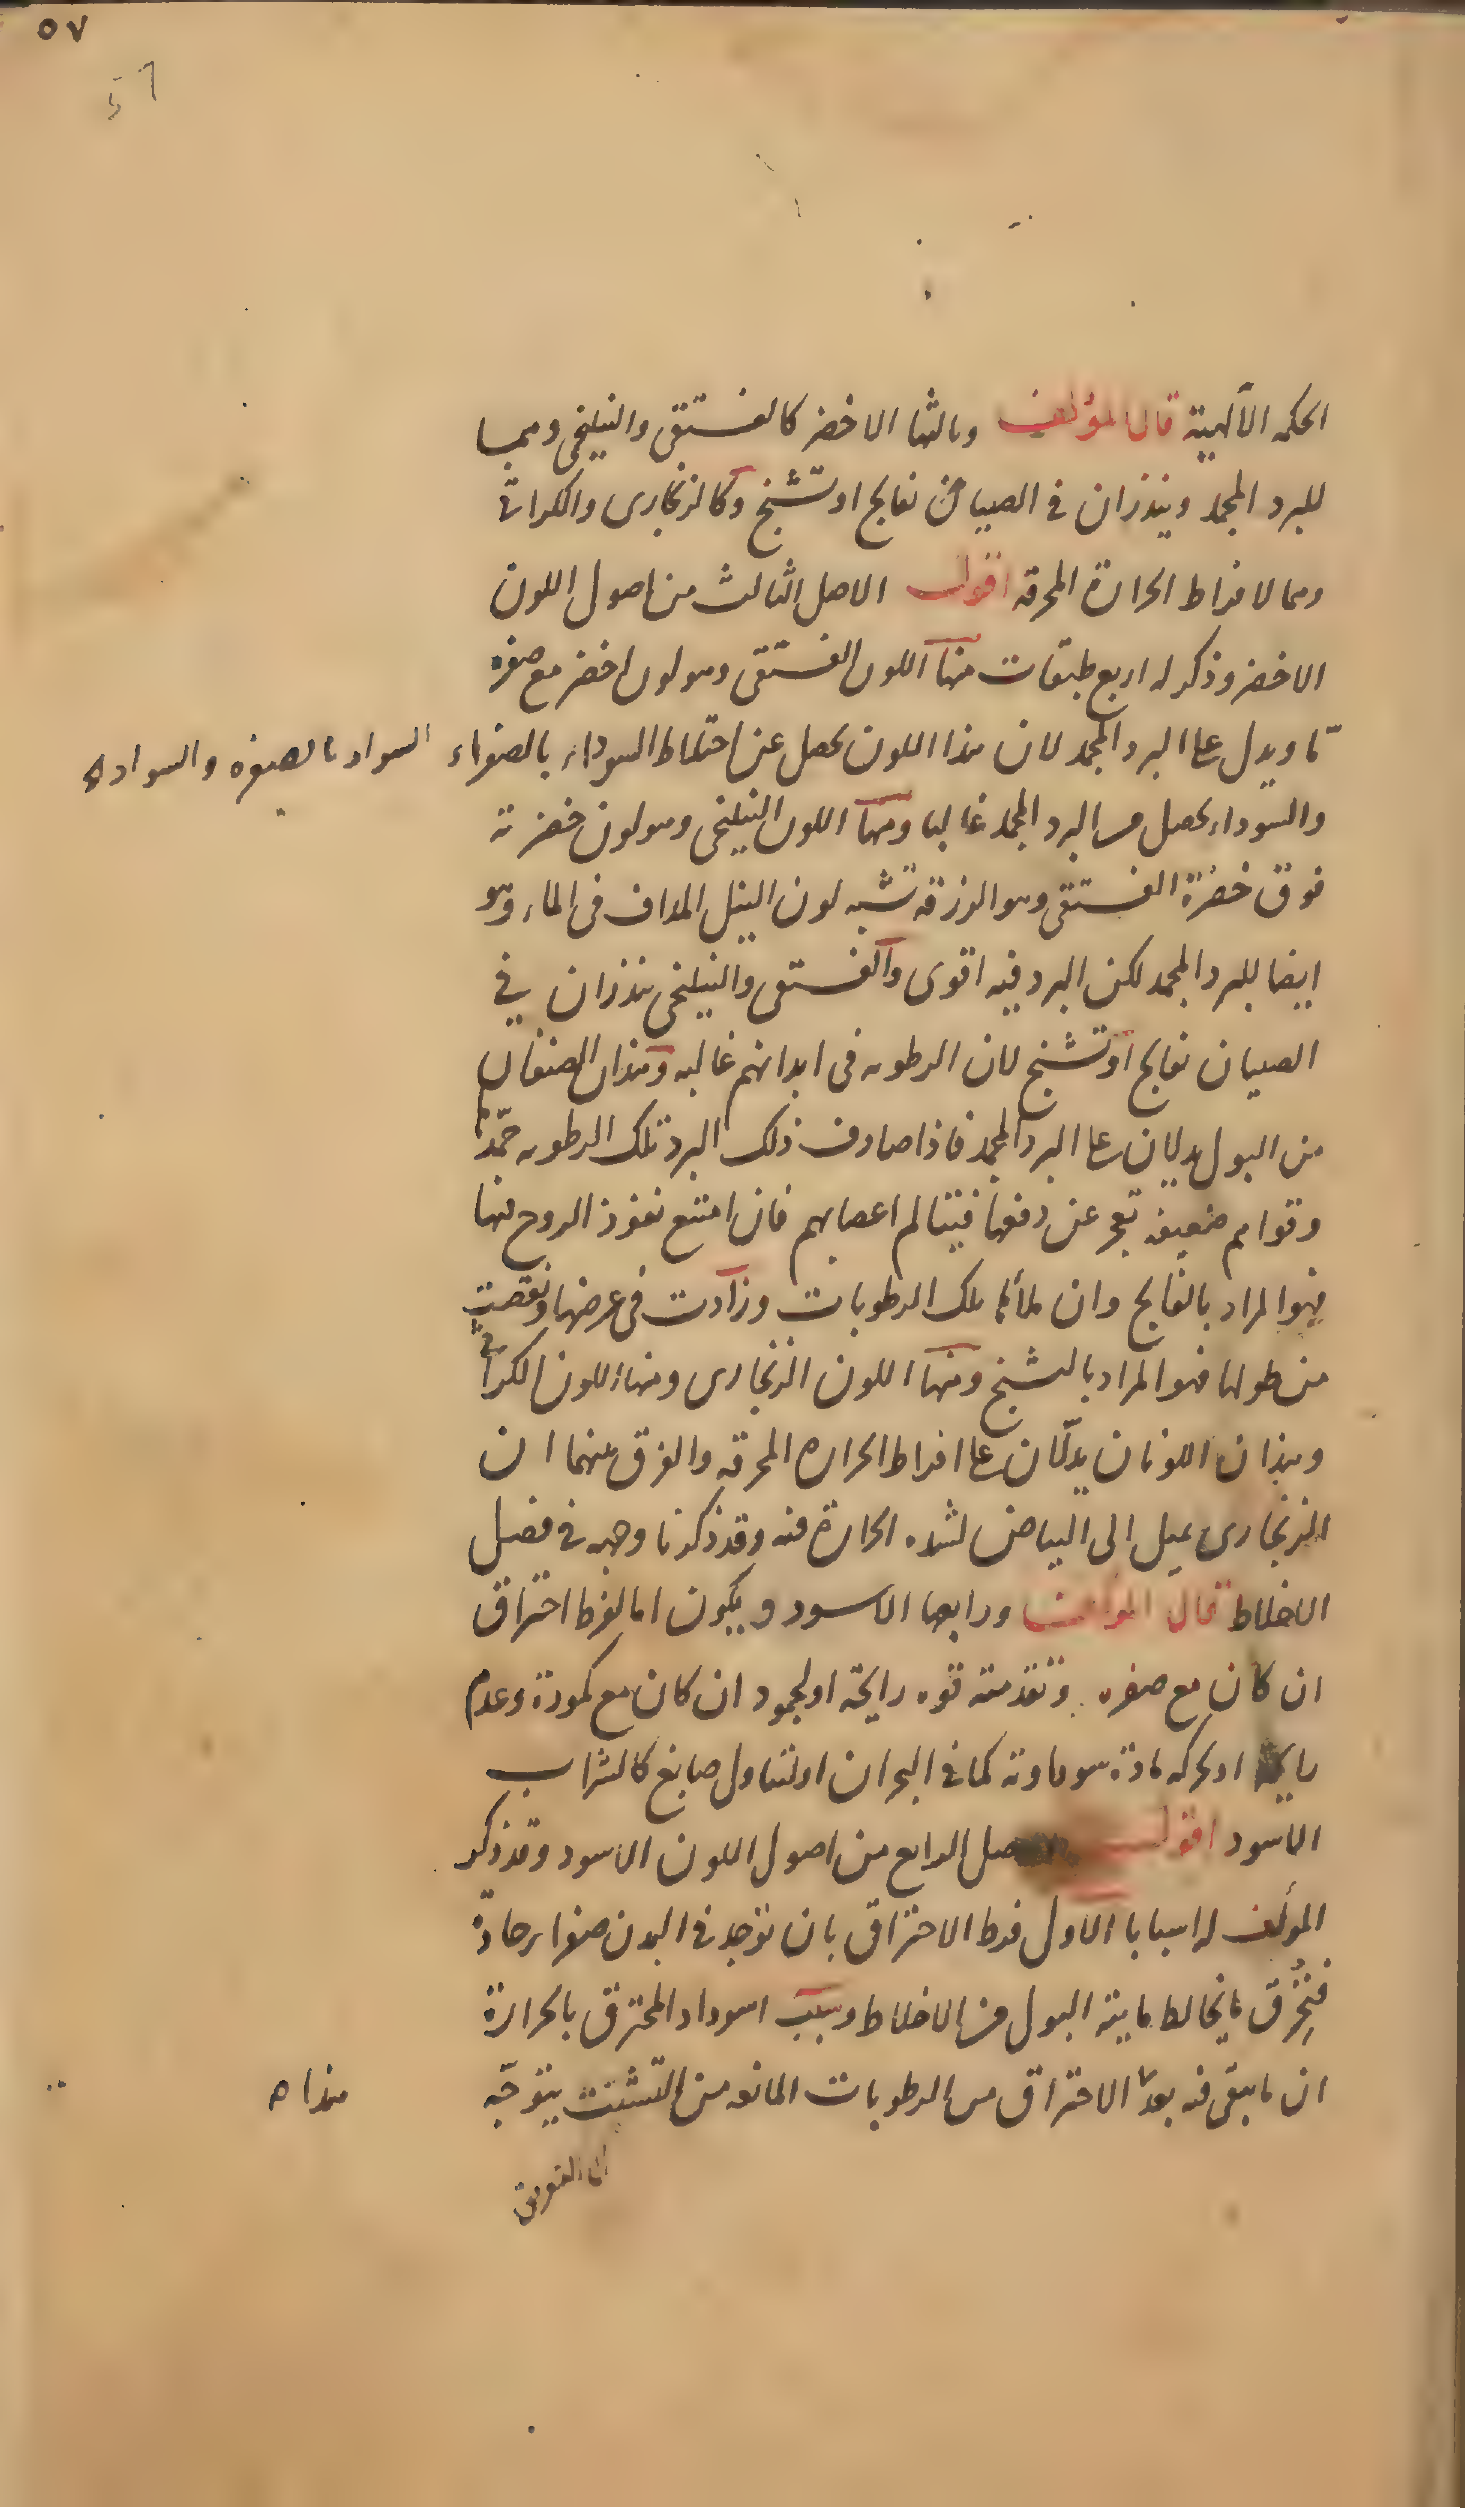 ٥٧
57
الحكمه الآلهية قال المؤلف وثالثها الاخضر كالفستقى والنيلنجى وهما
للبرد المجمد وينذران فى الصبيان بفالج او تشنج وكالزنجارى والكراثى
وهما لافراط الحرارة المحرقه اقول الاصل الثالث من اصول اللون
الاخضر وذكر له اربع طبقات منها اللون الفستقى وهو لون اخضر مع صفره
ما ويدل على البرد المجمد لان هذا اللون يحصل عن اختلاط السوداء بالصفراء
السواد بالصفره والسواد ه
والسوداء يحصل من البرد المجمد غالبا ومنها اللون النيلنجى وهو لون خضرته
فوق خضرة الفستقى وهو الزرقه تشبه لون النيل المداف فى الماء وهو
ايضا للبرد المجمد لكن البرد فيه اقوى والفستقى والنيلنجى ينذران فى
الصبيان بفالج او تشنج لان الرطوبه فى ابدانهم غالبه وهذان الصنفان
من البول يدلان على البرد المجمد فاذا صادف ذلك البرد تلك الرطوبه جمدّها
وقواهم ضعيفه تعجز عن دفعها فيتالم اعصابهم فان امتنع نفوذ الروح فيها
فهو المراد بالفالج وان ملأها تلك الرطوبات وزادت فى عرضها ونقصت
من طولها فهو المراد بالتشنج ومنها اللون الزنجارى ومنها اللون الكراثى
وهذان اللونان يدلّان على افراط الحراره المحرقه والفرق بينهما ان
الزنجارى يميل الى البياض لشده الحرارة فيه وقد ذكرنا وجهه فى فصل
الاخلاط قال المؤلف ورابعها الاسود ويكون اما لفرط احتراق
ان كان مع صفره وتقدمته قوه رايحة او لجمود ان كان مع كمودة وعدم
رايحة او لحركه مادة سوداوية كما فى البحران او لتناول صابغ كالشراب
الاسود اقول الاصل الرابع من اصول اللون الاسود وقد ذكر
المؤلف له اسبابا الاول فرط الاحتراق بان توجد فى البدن صفراء حادة
فتحرق ما يخالط مايية البول من الاخلاط وسبب اسوداد المحترق بالحرارة
ان ما يبقى فيه بعد الاحتراق من الرطوبات المانعه من التشتت يتوجّه
هذا ه
الى التفريق